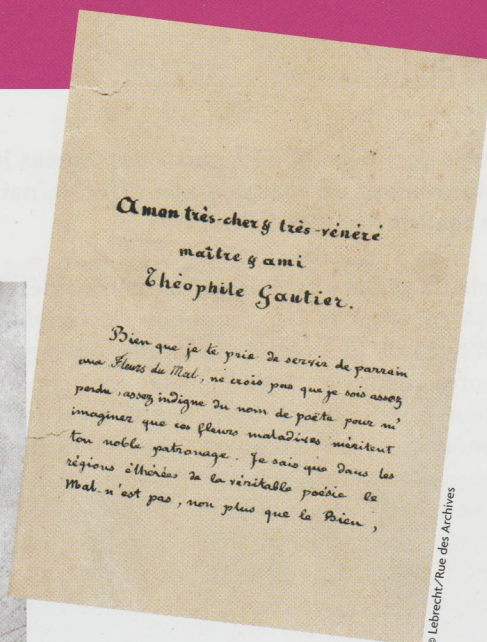 A mon très-cher & très-vénéré
maître & ami
Théophile Gautier.
Bien que je te prie de servir de parrain
aux Fleurs du Mal, ne crois pas que je sois assez
perdu, assez indigne du nom de poëte pour m'
imaginer que ces fleurs maladives méritent
ton noble patronage. Je sais que dans les
régions éthérées de la véritable poésie le
Mal n'est pas, non plus que le Bien,
© Lebrecht/Rue des Archives